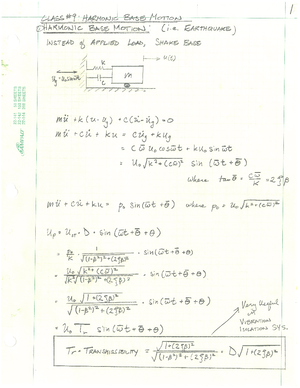 1
CLASS #9 - HARMONIC BASE MOTION
HARMONIC BASE MOTION (i.e. EARTHQUAKE)
INSTEAD OF APPLIED LOAD, SHAKE BASE
u(t)
k
m
c
u_g = u_0 sin ω̄t
mü + k(u - u_g) + c(u̇ - u̇_g) = 0
mü + cu̇ + ku = cu̇_g + ku_g
= c ω̄ u_0 cos ω̄t + k u_0 sin ω̄t
= u_0 √(k² + (cω̄)²) sin (ω̄t + θ̄)
where tan θ̄ = cω̄/k = 2ζβ
mü + cu̇ + ku = p_0 sin(ω̄t + θ̄) where p_0 = u_0 √(k² + (cω̄)²)
u_p = u_st · D · sin(ω̄t + θ̄ + θ)
= p_0/k · 1/√((1-β²)² + (2ζβ)²) · sin(ω̄t + θ̄ + θ)
= u_0 √(k² + (cω̄)²) / √k² √((1-β²)² + (2ζβ)²) · sin(ω̄t + θ̄ + θ)
= u_0 √(1 + (2ζβ)²) / √((1-β²)² + (2ζβ)²) · sin(ω̄t + θ̄ + θ)
= u_0 Tr sin(ω̄t + θ̄ + θ)
Very Useful
in
VIBRATION
ISOLATION SYS.
Tr = TRANSMISSIBILITY = √(1 + (2ζβ)²) / √((1-β²)² + (2ζβ)²) = D √(1 + (2ζβ)²)